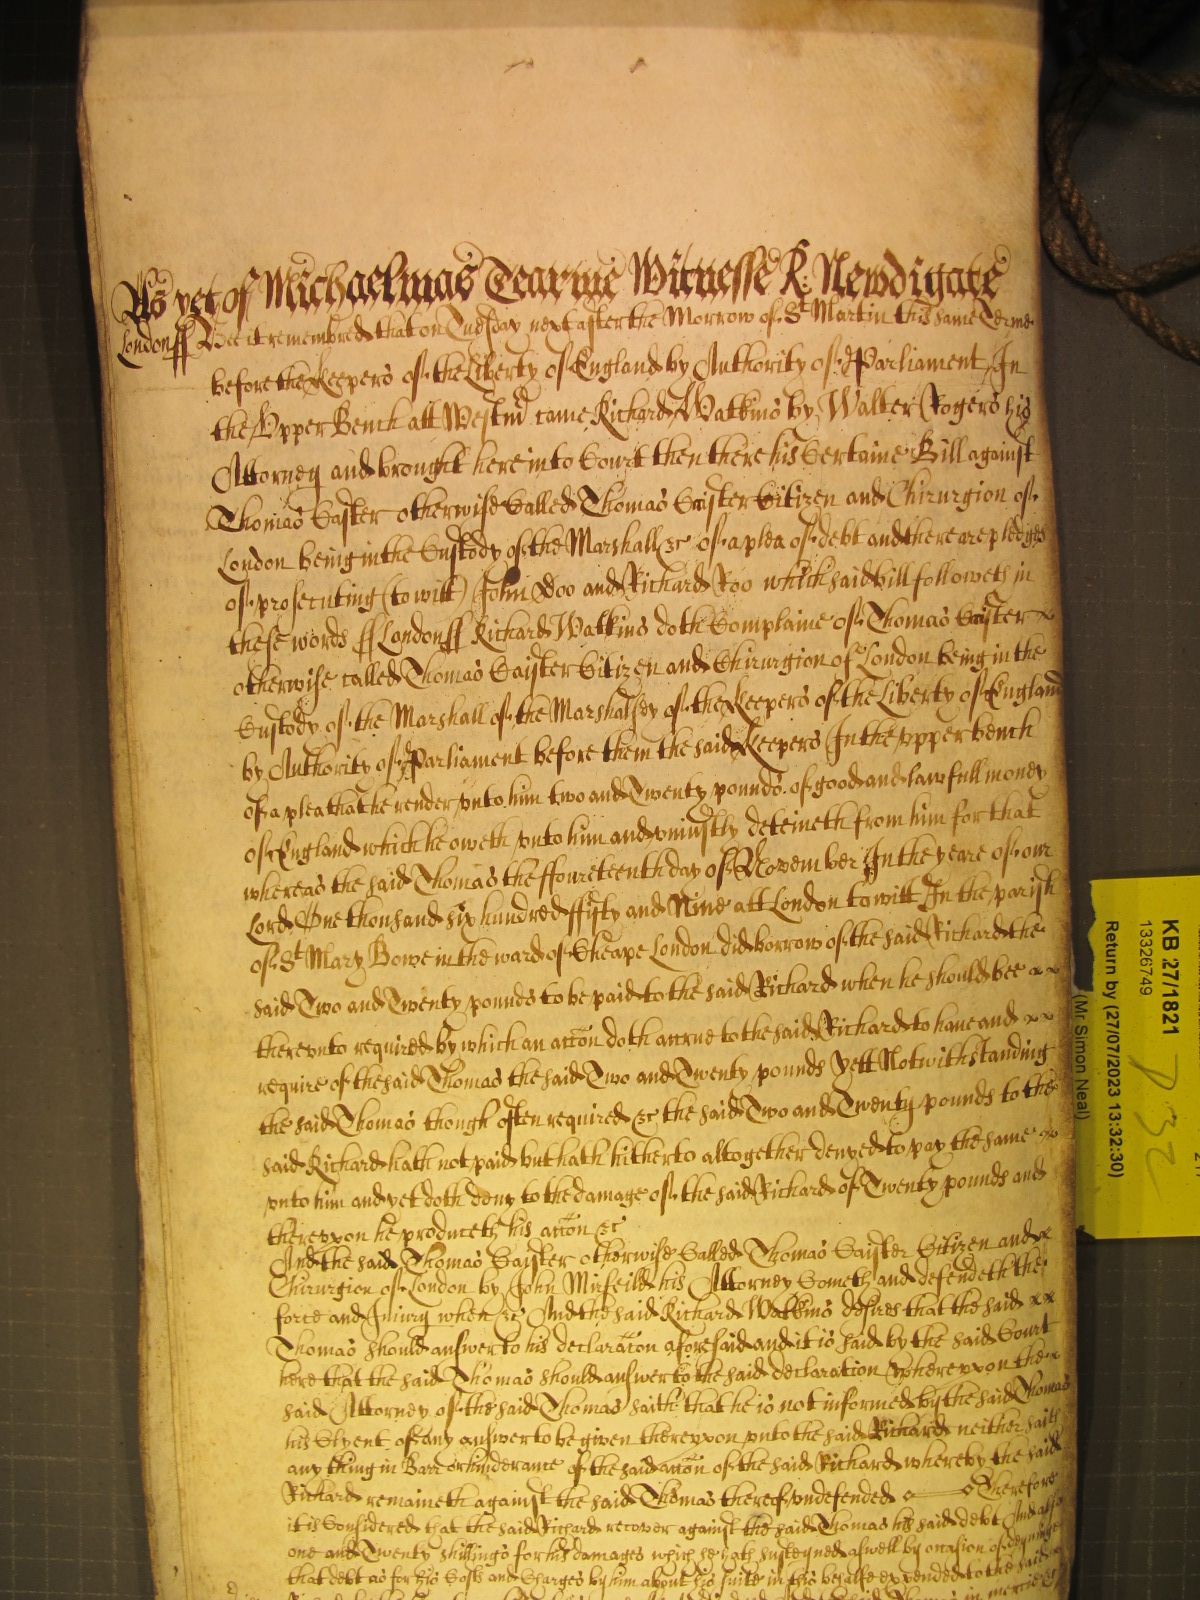 As yet of Michaelmas Tearme Witnesse R: Newdigate
London ss Bee it remembred that on Tuesday next after the Morrow of St Martin this same Terme
before the Keepers of the Liberty of England by Authority of Parliament In
the Upper Bench att Westmr came Richard Watkins by Walter Rogers his
Attorney and brought here into Court then there his Certaine Bill against
Thomas Caister otherwise Called Thomas Caister Citizen and Chirurgion of
London being in the Custody of the Marshall &c of a plea of debt and there are pledges
of prosecuting (to witt) John Doo and Richard Roo which said bill followeth in
these words ss London ss Richard Watkins doth Complaine of Thomas Caister
otherwise called Thomas Caister Citizen and Chirurgion of London being in the
Custody of the Marshall of the Marshalsey of the Keepers of the Liberty of England
by Authority of Parliament before them the said Keepers In the upper bench
of a plea that he render unto him two and Twenty pounds of good and lawfull money
of England which he oweth unto him and uniustly deteineth from him for that
whereas the said Thomas the ffoureteenth day of November In the yeare of our
Lord One thousand six hundred ffifty and Nine att London to witt In the parish
of St Mary Bowe in the ward of Cheape London did borrow of the said Richard the
said Two and Twenty pounds to be paid to the said Richard when he should bee
thereunto required by which an accon doth accrue to the said Richard to haue and
require of the said Thomas the said Two and Twenty pounds Yett Notwithstanding
the said Thomas though often required &c the said Two and Twenty pounds to the
said Richard hath not paid but hath hitherto altogether denyed to pay the same
unto him and yet doth deny to the damage of the said Richard of Twenty pounds and
thereupon he produceth his accon &c
And the said Thomas Caister otherwise Called Thomas Caister Citizen and
Chirurgion of London by John Mirfeild his Attorney Cometh and defendeth the
force and Iniury when &c And the said Richard Watkins desires that the said
Thomas should answer to his declaracon aforesaid and it is said by the said Court
here that the said Thomas should answer to the said declaration Whereupon the
said Attorney of the said Thomas saith that he is not informed by the said Thomas
his Clyent of any answer to be given thereupon unto the said Richard neither saith
any thing in Barr or hinderance of the said accon of the said Richard whereby the said
Richard remaineth against the said Thomas thereof undefended Therefore
it is Considered that the said Richard recover against the said Thomas his said debt And also
one and Twenty shillings for his damages which he hath susteyned aswell by occasion of deteyninge
that debt as for his Costs and Charges by him about his suite in this behalfe expended to the said
KB 27/1821
13326749
Return by (27/07/2023 13:32:30)
(Mr Simon Neal)